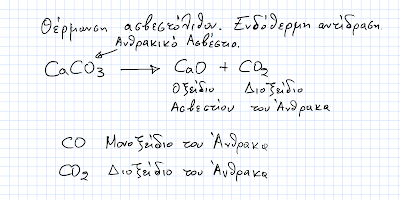 Θέρμανση ασβεστόλιθου. Ενδόθερμη αντίδραση
Ανθρακικό Ασβέστιο.
CaCO3 → CaO + CO2
Οξείδιο Διοξείδιο
Ασβεστίου του Άνθρακα
CO Μονοξείδιο του Άνθρακα
CO2 Διοξείδιο του Άνθρακα